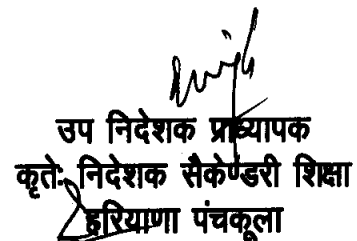 उप निदेशक प्राध्यापक
कृतेः निदेशक सैकेण्डरी शिक्षा
हरियाणा पंचकूला